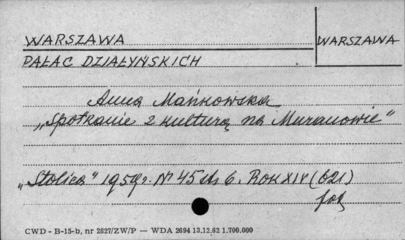 WARSZAWA
WARSZAWA
PAŁAC DZIAŁYŃSKICH
Anna Mańkowska
„Spotkanie z kulturą na Muranowie"
„Stolica" 1959r. Nr 45 str 6. Rok XIV (621)
fot
CWD - B-15-b, nr 2827/ZW/P — WDA 2694 13.12.62 1.700.000